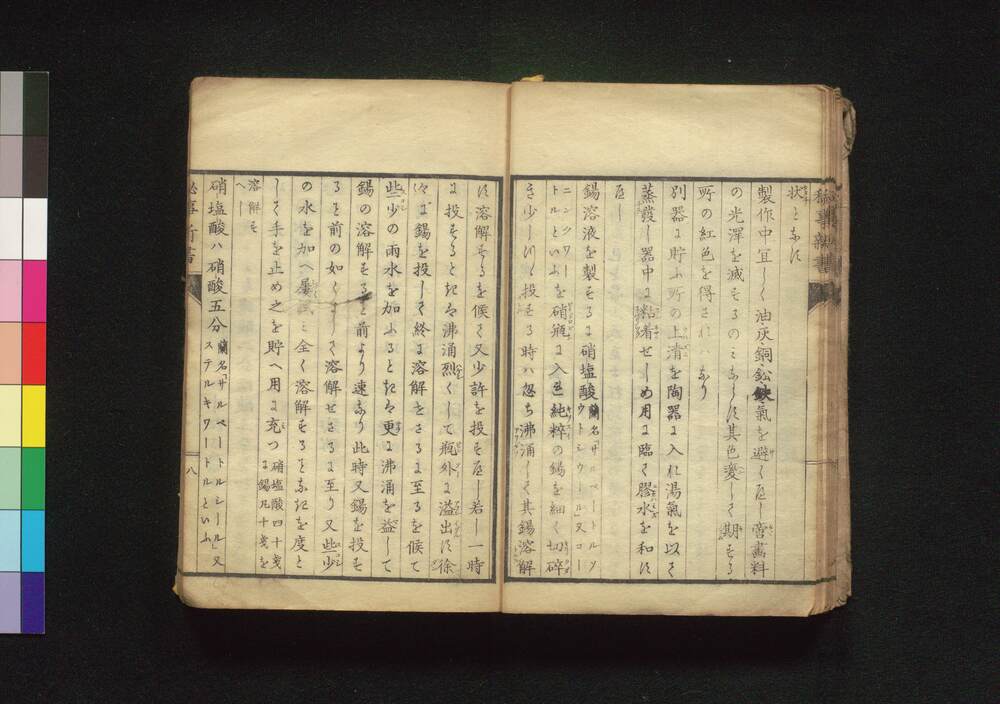 秘事新書
状となす
製作中宜しく油灰銅鉛鉄氣を避くべし啻畵料
の光澤を減するのミならす其色変して期する
所の紅色を得されハなり
別器に貯ふ所の上清を陶器に入れ湯氣を以て
蒸散し器中に粘着せしめ用に臨て膠水を和す
べし
錫溶液を製するに硝塩酸蘭名「サルペートルソ
ウトシウール」又コー
ニンクワー
トルといふを硝瓶に入て純粋の錫を細く切碎
き少しづゝ投する時ハ忽ち沸涌して其錫溶解
す溶解するを候て又少許を投すべし若し一時
に投するときハ沸涌烈くして瓶外に溢出す徐
々に錫を投して終に溶解せさるに至るを候て
些少の雨水を加ふるときハ更に沸涌を益して
錫の溶解する前より速なり此時又錫を投す
ると前の如くにして溶解せさるに至り又些少
の水を加へ屢ミ全く溶解するとなきを度と
して手を止め之を貯へ用に充つ硝塩酸四十戔
に錫凡十戔を
溶解す
べし
硝塩酸ハ硝酸五分蘭名「サルペートルシール」又
ステルキワートルといふ
八